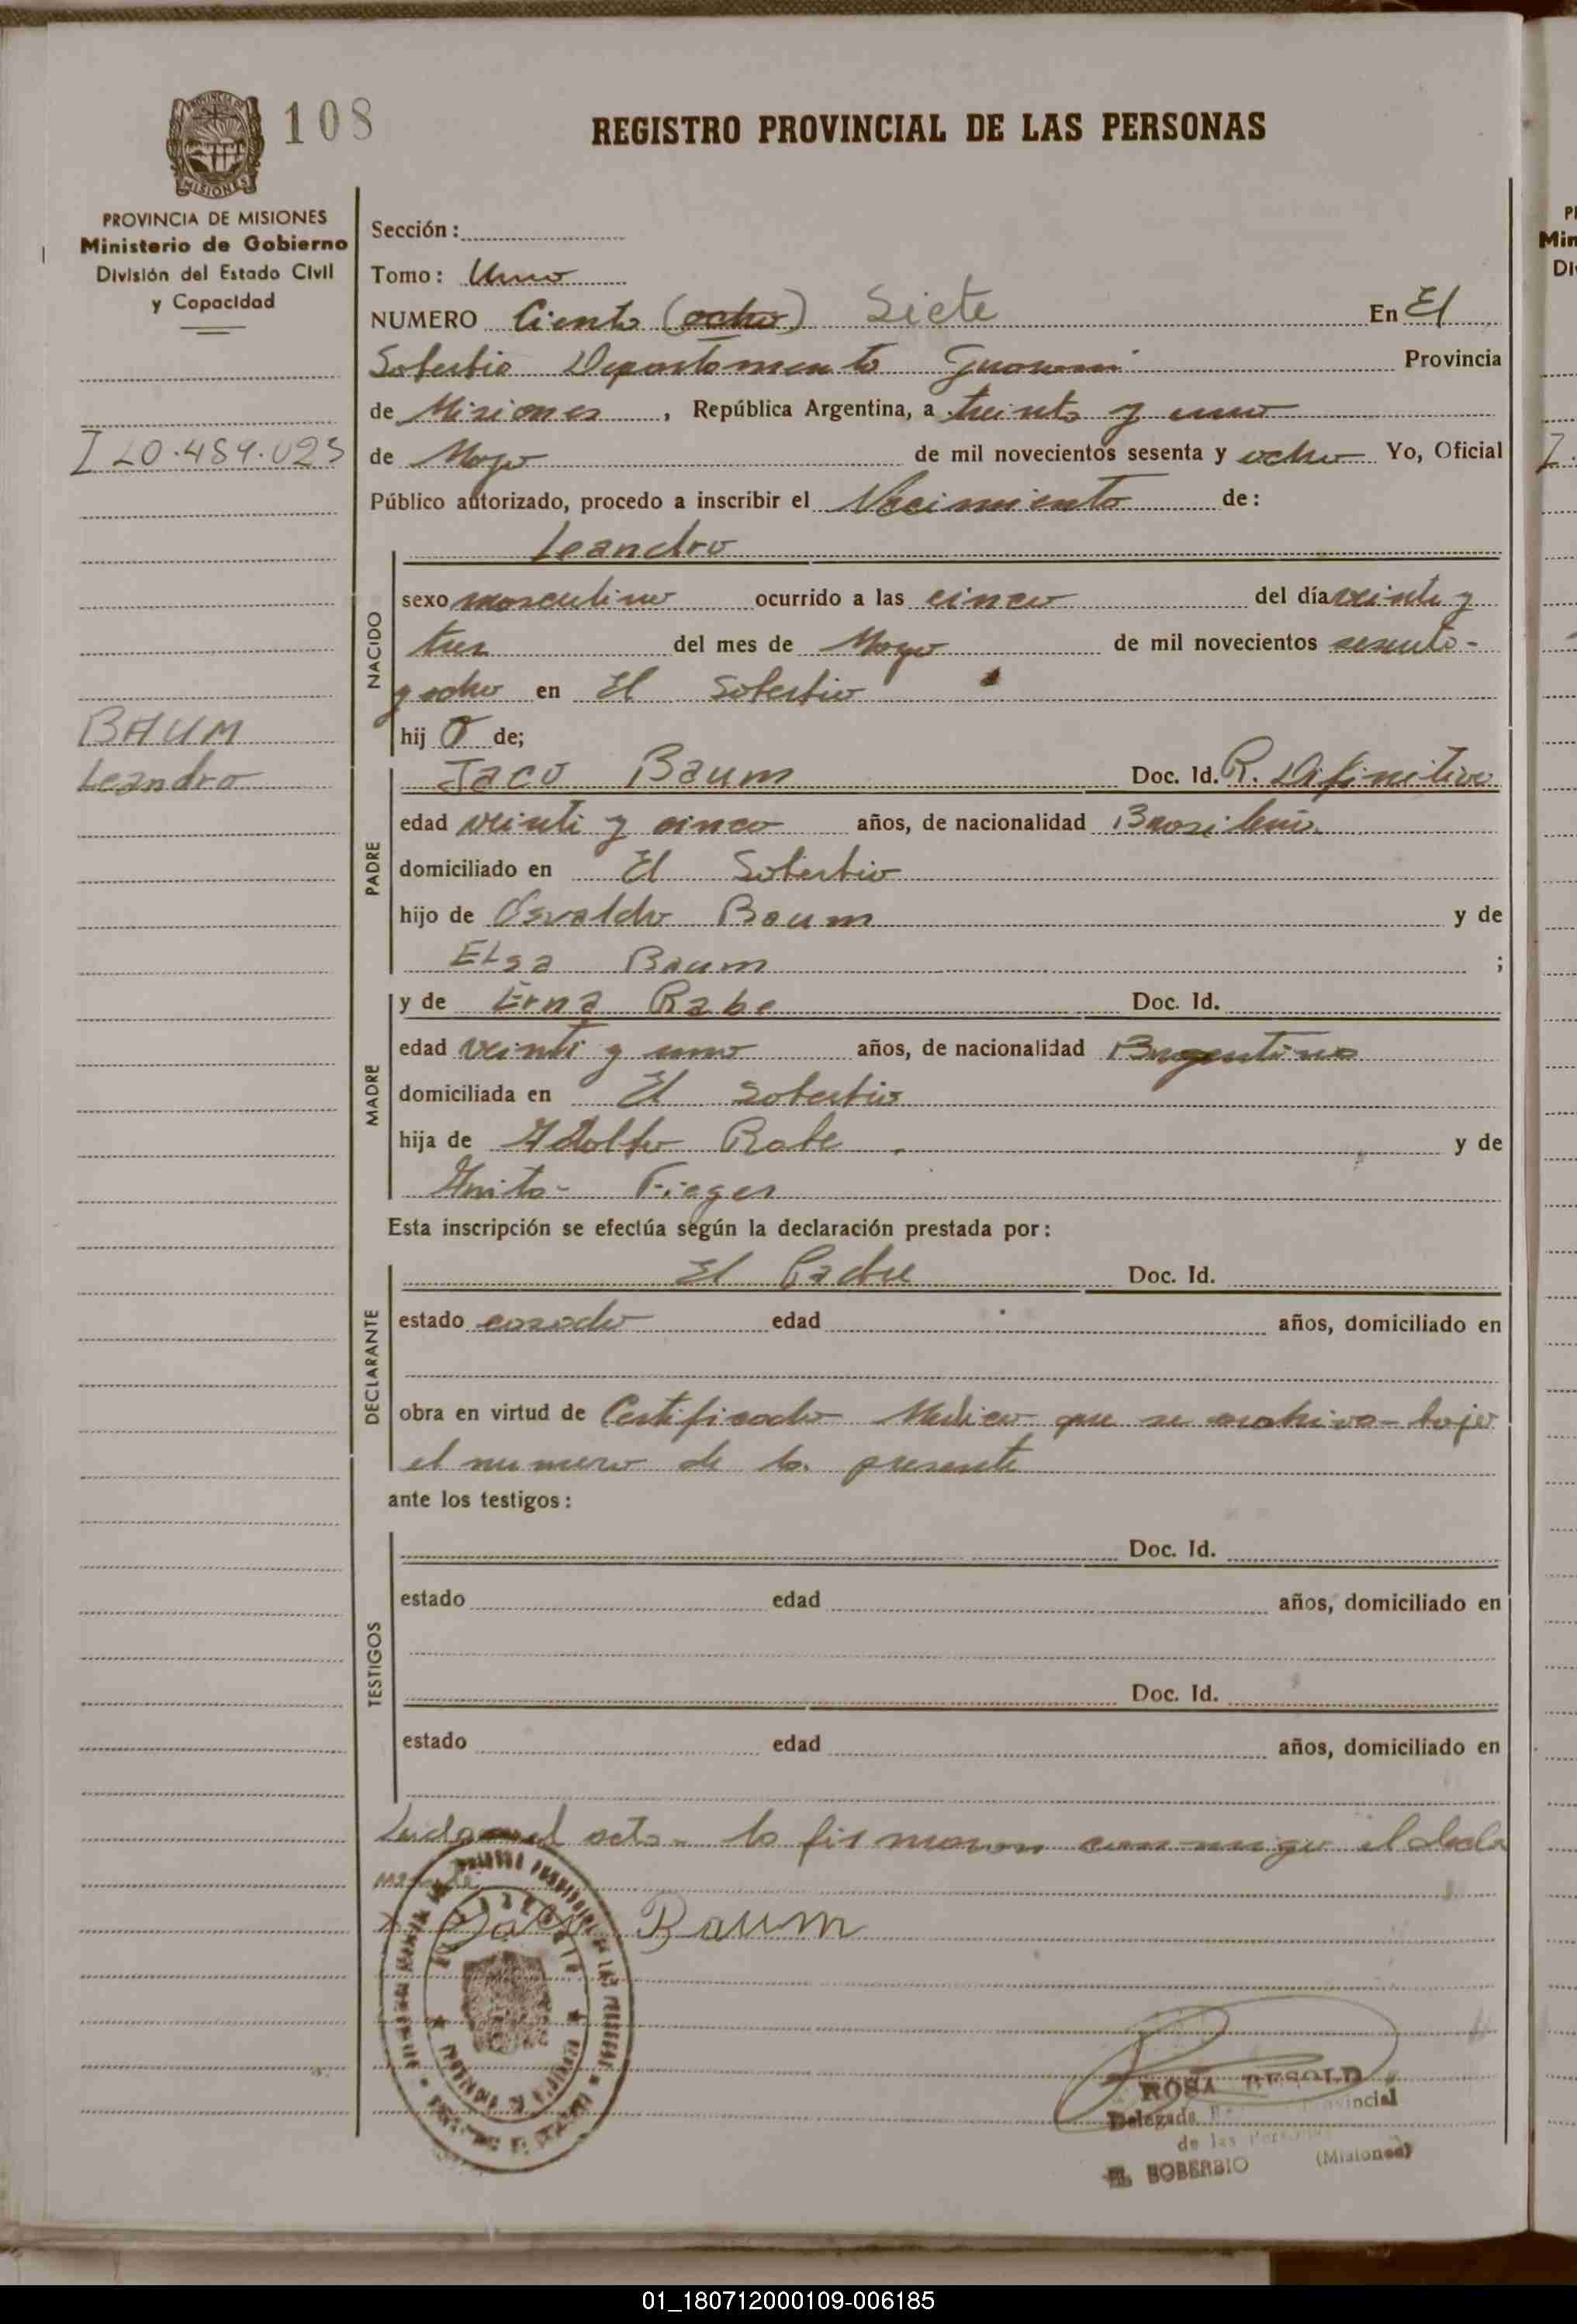 108
REGISTRO PROVINCIAL DE LAS PERSONAS
PROVINCIA DE MISIONES
Ministerio de Gobierno
División del Estado Civil
y Capacidad
I 20.489.023
BAUM
Leandro
Sección:
Tomo: Uno
NUMERO Ciento (ocho) Siete En El
Soberbio Departamento Guarani Provincia
de Misiones, República Argentina, a treinta y uno
de Mayo de mil novecientos sesenta y ocho Yo, Oficial
Público autorizado, procedo a inscribir el Nacimiento de:
NACIDO
Leandro
sexo masculino ocurrido a las cinco del día veinte y
tres del mes de Mayo de mil novecientos sesenta-
y ocho en El Soberbio
hij o de;
PADRE
Jaco Baum Doc. Id. R. Difinitivo
edad veinti y cinco años, de nacionalidad Brasileño
domiciliado en El Soberbio
hijo de Osvaldo Baum y de
Elsa Baum ;
MADRE
y de Erna Rabe Doc. Id.
edad veinti y uno años, de nacionalidad Argentina
domiciliada en El Soberbio
hija de Adolfo Rabe y de
Anita Fieger
Esta inscripción se efectúa según la declaración prestada por:
DECLARANTE
El Padre Doc. Id.
estado casado edad años, domiciliado en
obra en virtud de Certificado Medico que se archiva bajo
el numero de la presente
ante los testigos:
TESTIGOS
Doc. Id.
estado edad años, domiciliado en
Doc. Id.
estado edad años, domiciliado en
Leida el acta la firmaron conmigo el decla
rante
Jaco Baum
ROSA BESOLD
Delegada Provincial
de las Personas
EL SOBERBIO (Misiones)
PROVINCIA DE
MISIONES
01_180712000109-006185